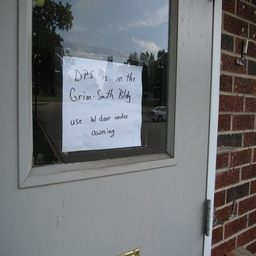 DPS is in the
Grim-Smith Bldg
use W door under
awning